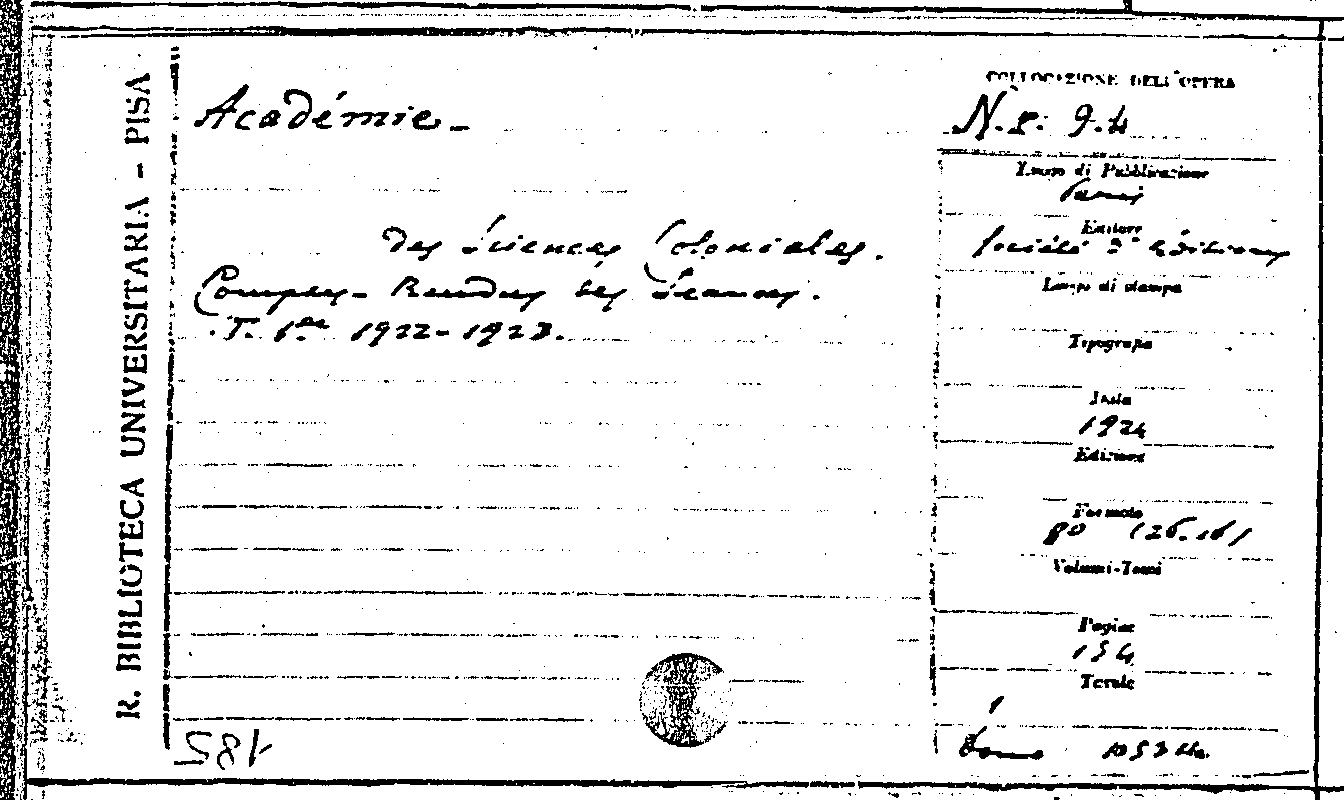 R. BIBLIOTECA UNIVERSITARIA - PISA
Académie -
des Sciences Coloniales.
Comptes-Rendus des Séances.
T. 1er 1922-1923.
185
COLLOCAZIONE DELL'OPERA
N. 8. 9.4
Luogo di Pubblicazione
Paris
Editore
Société d'Editions
Luogo di stampa
Tipografia
Data
1924
Edizione
Formato
8º (26.16)
Volumi-Tomi
Pagine
154
Tavole
1
Dono